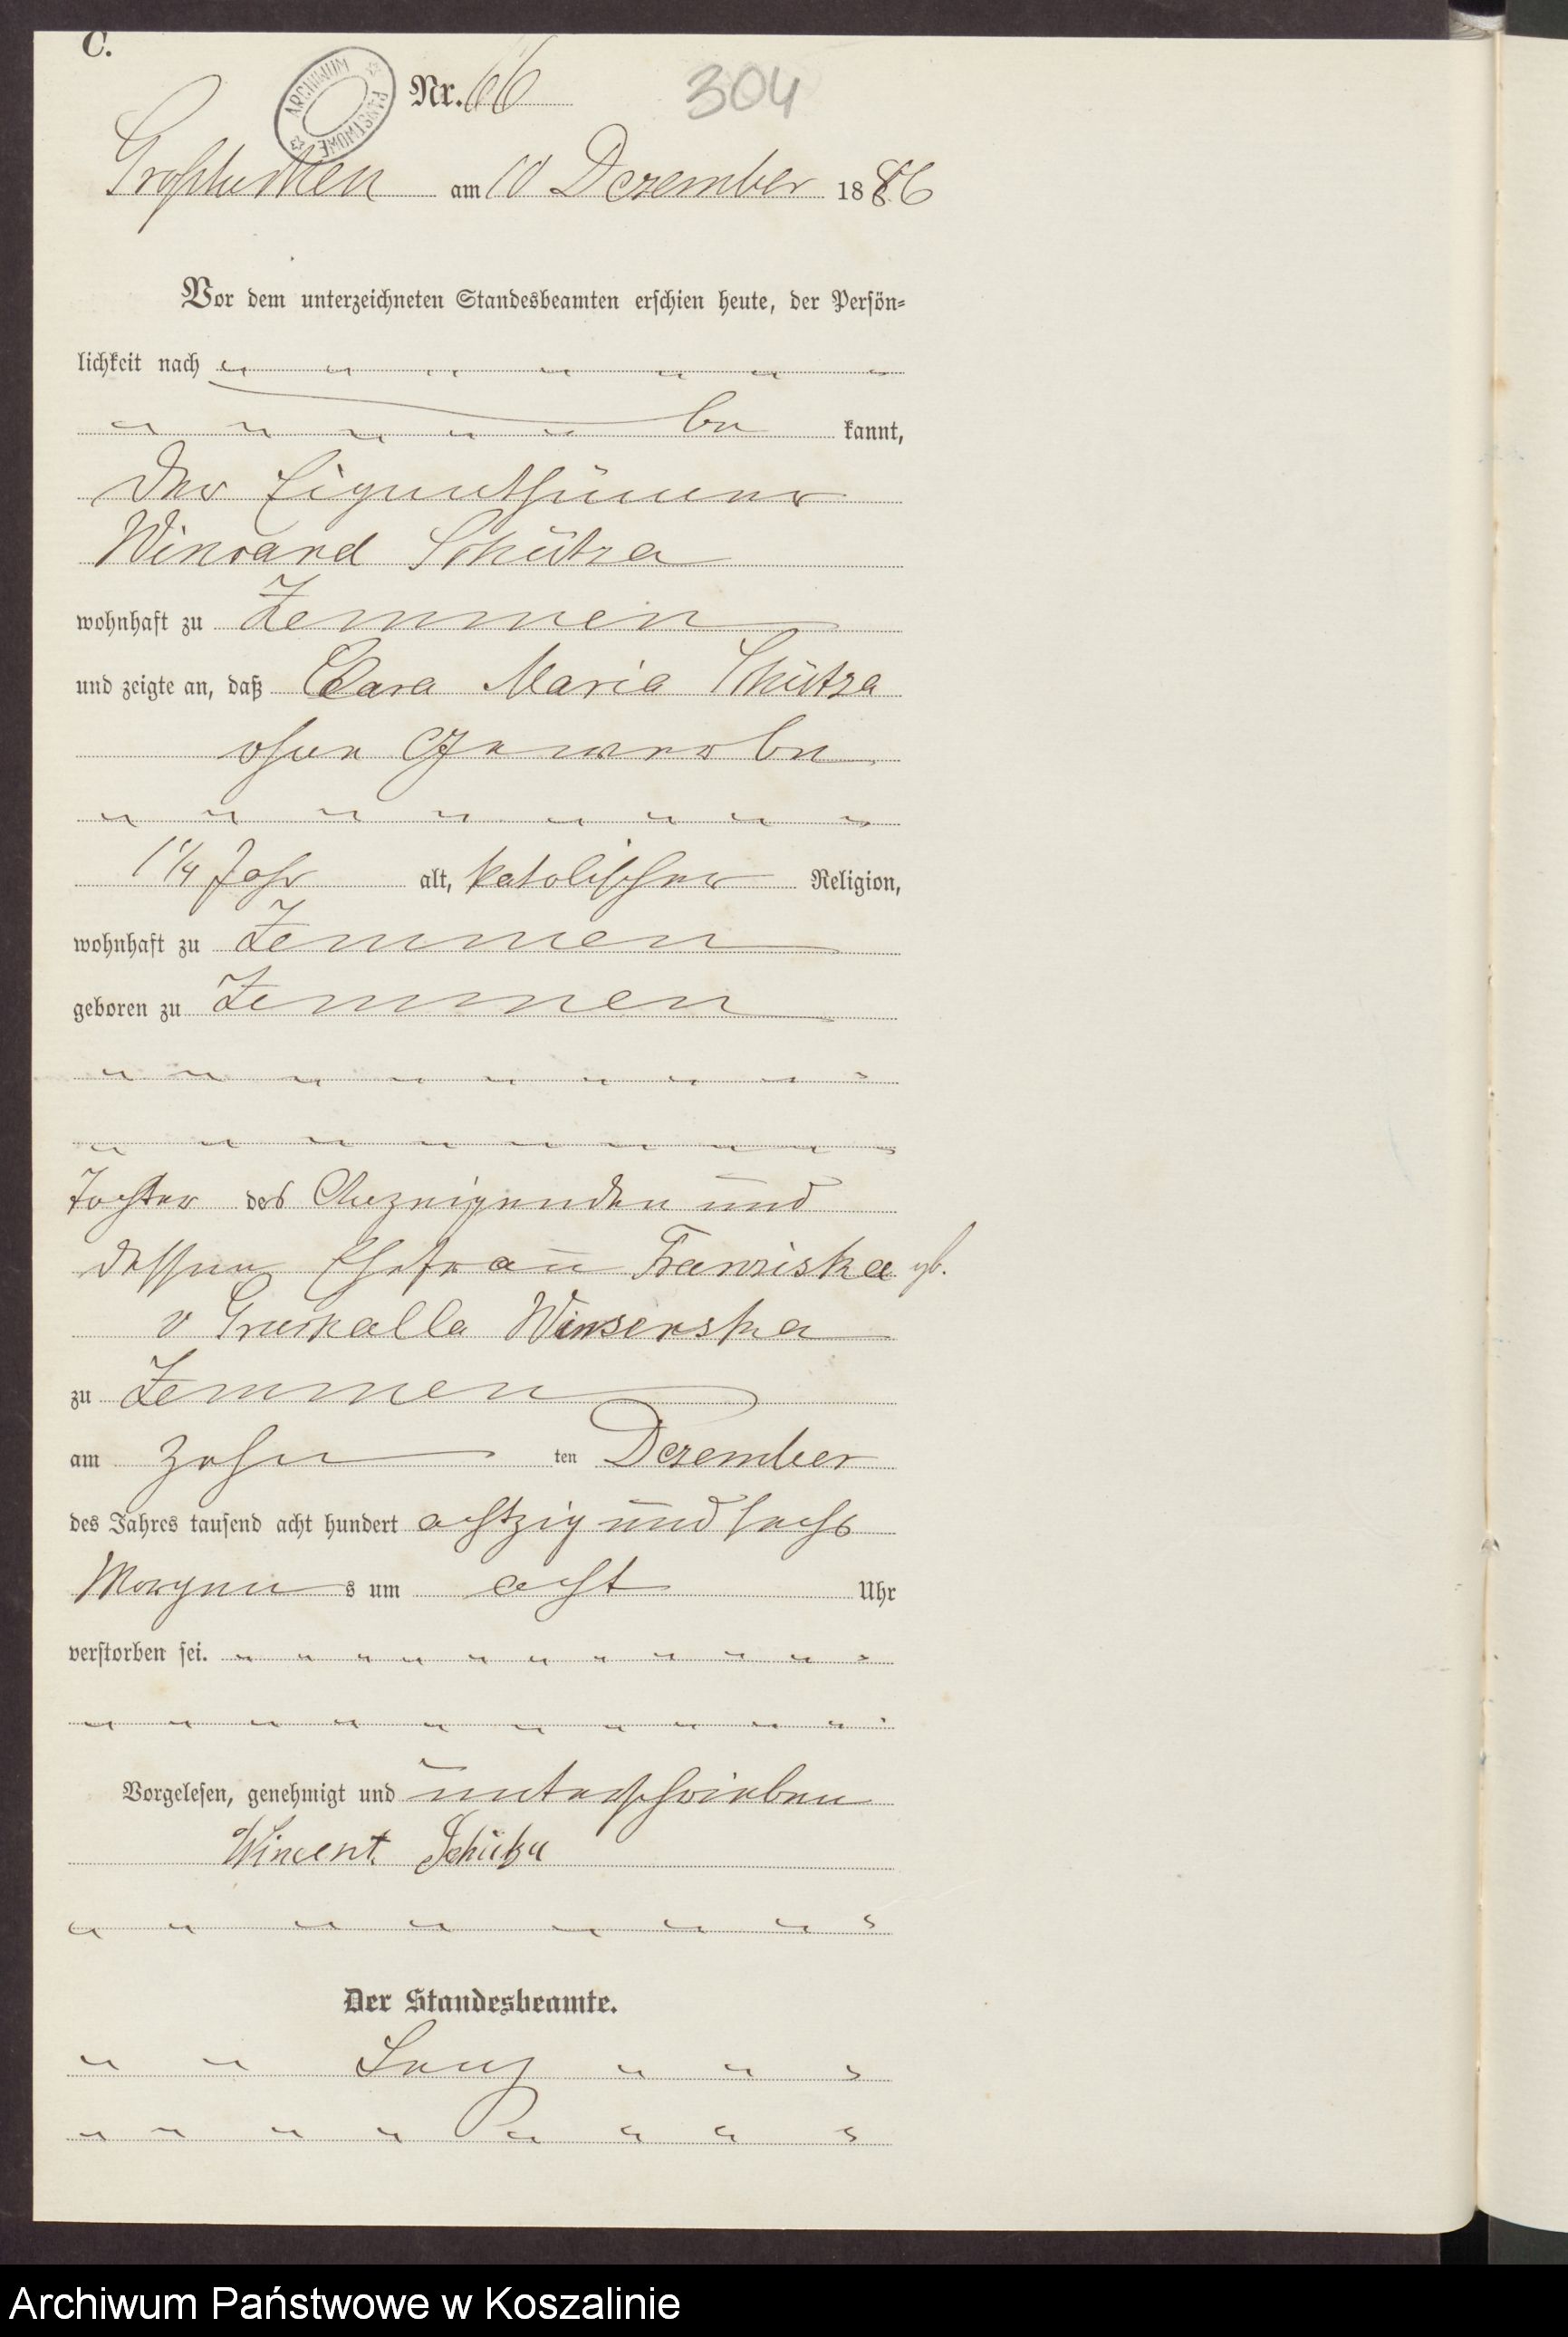 C.
ARCHIWUM PAŃSTWOWE
Nr. 66
304
am 10 Dezember 1886
Vor dem unterzeichneten Standesbeamten erschien heute, der Persön=
lichkeit nach
be kannt,
der Eigenthümer
Schütza
wohnhaft zu Zemmen
und zeigte an, daß Clara Maria Schütza
ohne Gewerbe
1 1/4 Jahr alt, katolischer Religion,
wohnhaft zu Zemmen
geboren zu Zemmen
Tochter des Anzeigenden und
dessen Ehefrau Franziska geb.
v
zu Zemmen
am zehn ten Dezember
des Jahres tausend acht hundert achtzig und sechs
Morgens um acht Uhr
verstorben sei.
Vorgelesen, genehmigt und unterschrieben
Wincent
Der Standesbeamte.
Archiwum Państwowe w Koszalinie